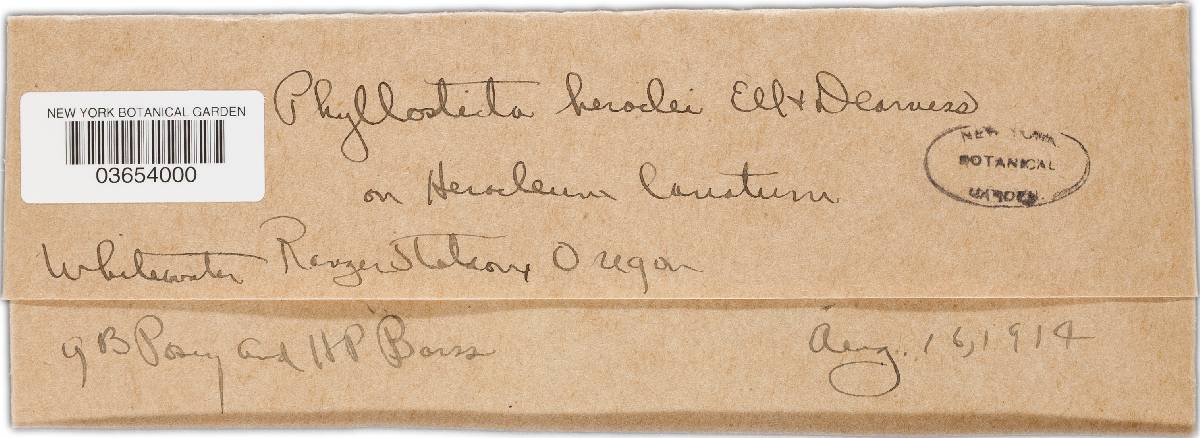 Phyllosticta heraclei Ell & Dearness
NEW YORK BOTANICAL GARDEN
03654000
NEW YORK
BOTANICAL
GARDEN
on Heracleum lanatum
Whitewater Ranger Station, Oregon
G B Posey and H P Barss
Aug. 16, 1914